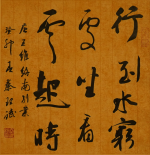 行到水窮
處坐看
雲起時
王維終南別業
癸卯